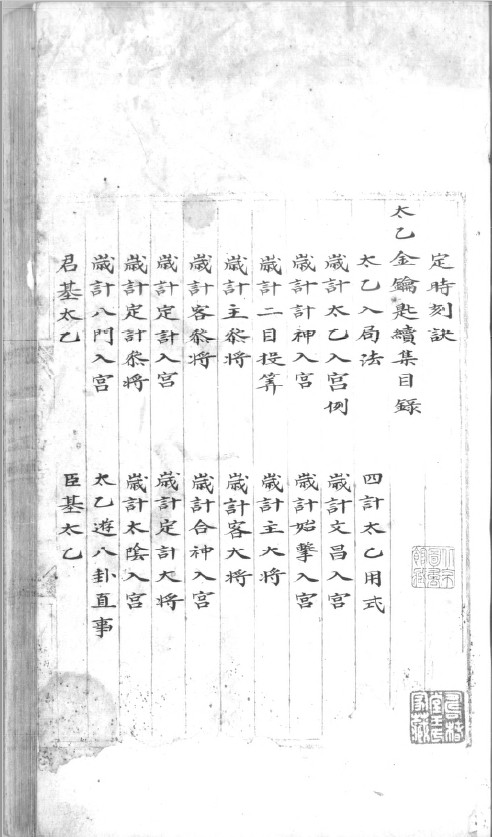 定時刻訣
太乙金鑰匙續集目錄
太乙入局法　四計太乙用式
歲計太乙入宫例　歲計文昌入宫
歲計計神入宫　歲計始擊入宫
歲計二目投筭　歲計主大將
歲計主叅將　歲計客大將
歲計客叅將　歲計合神入宫
歲計定計入宫　歲計定計大將
歲計定計叅將　歲計太陰入宫
歲計八門入宫　太乙遊八卦直事
君基太乙　臣基太乙